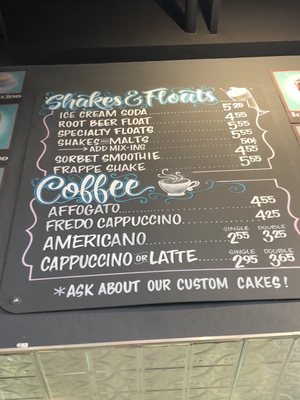 Shakes & Floats
ICE CREAM SODA 5.25
ROOT BEER FLOAT 4.55
SPECIALTY FLOATS 5.55
SHAKES AND MALTS 5.55
> ADD MIX-INS 50¢
SORBET SMOOTHIE 4.55
FRAPPE SHAKE 5.55
Coffee
AFFOGATO 4.55
FREDO CAPPUCCINO 4.25
SINGLE DOUBLE
AMERICANO 2.55 3.25
SINGLE DOUBLE
CAPPUCCINO OR LATTE 2.95 3.65
*ASK ABOUT OUR CUSTOM CAKES!